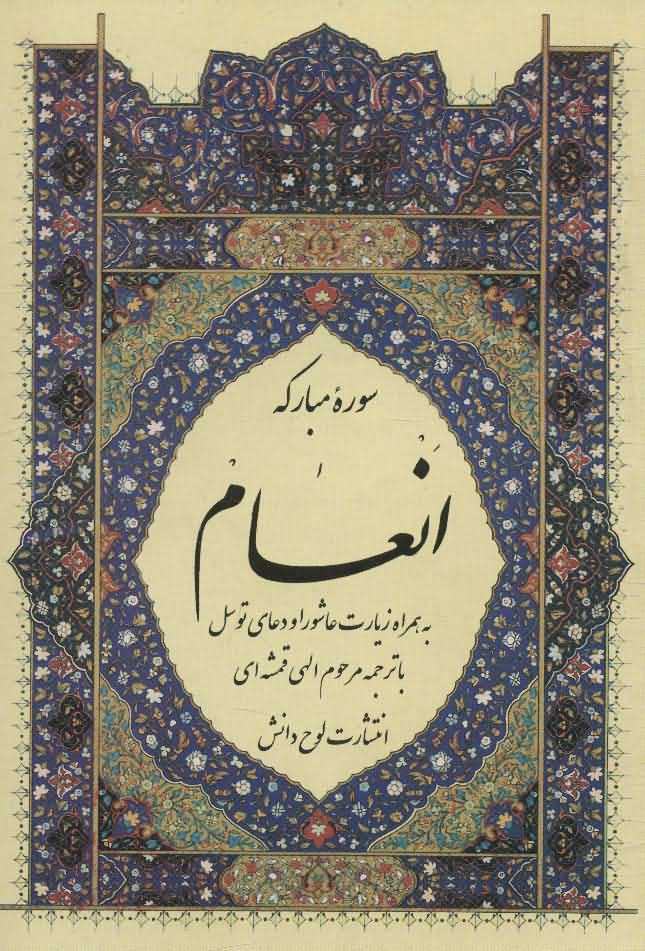 سورهٔ مبارکه
انعام
به همراه زیارت عاشورا و دعای توسل
با ترجمه مرحوم الهی قمشه ای
انتشارت لوح دانش